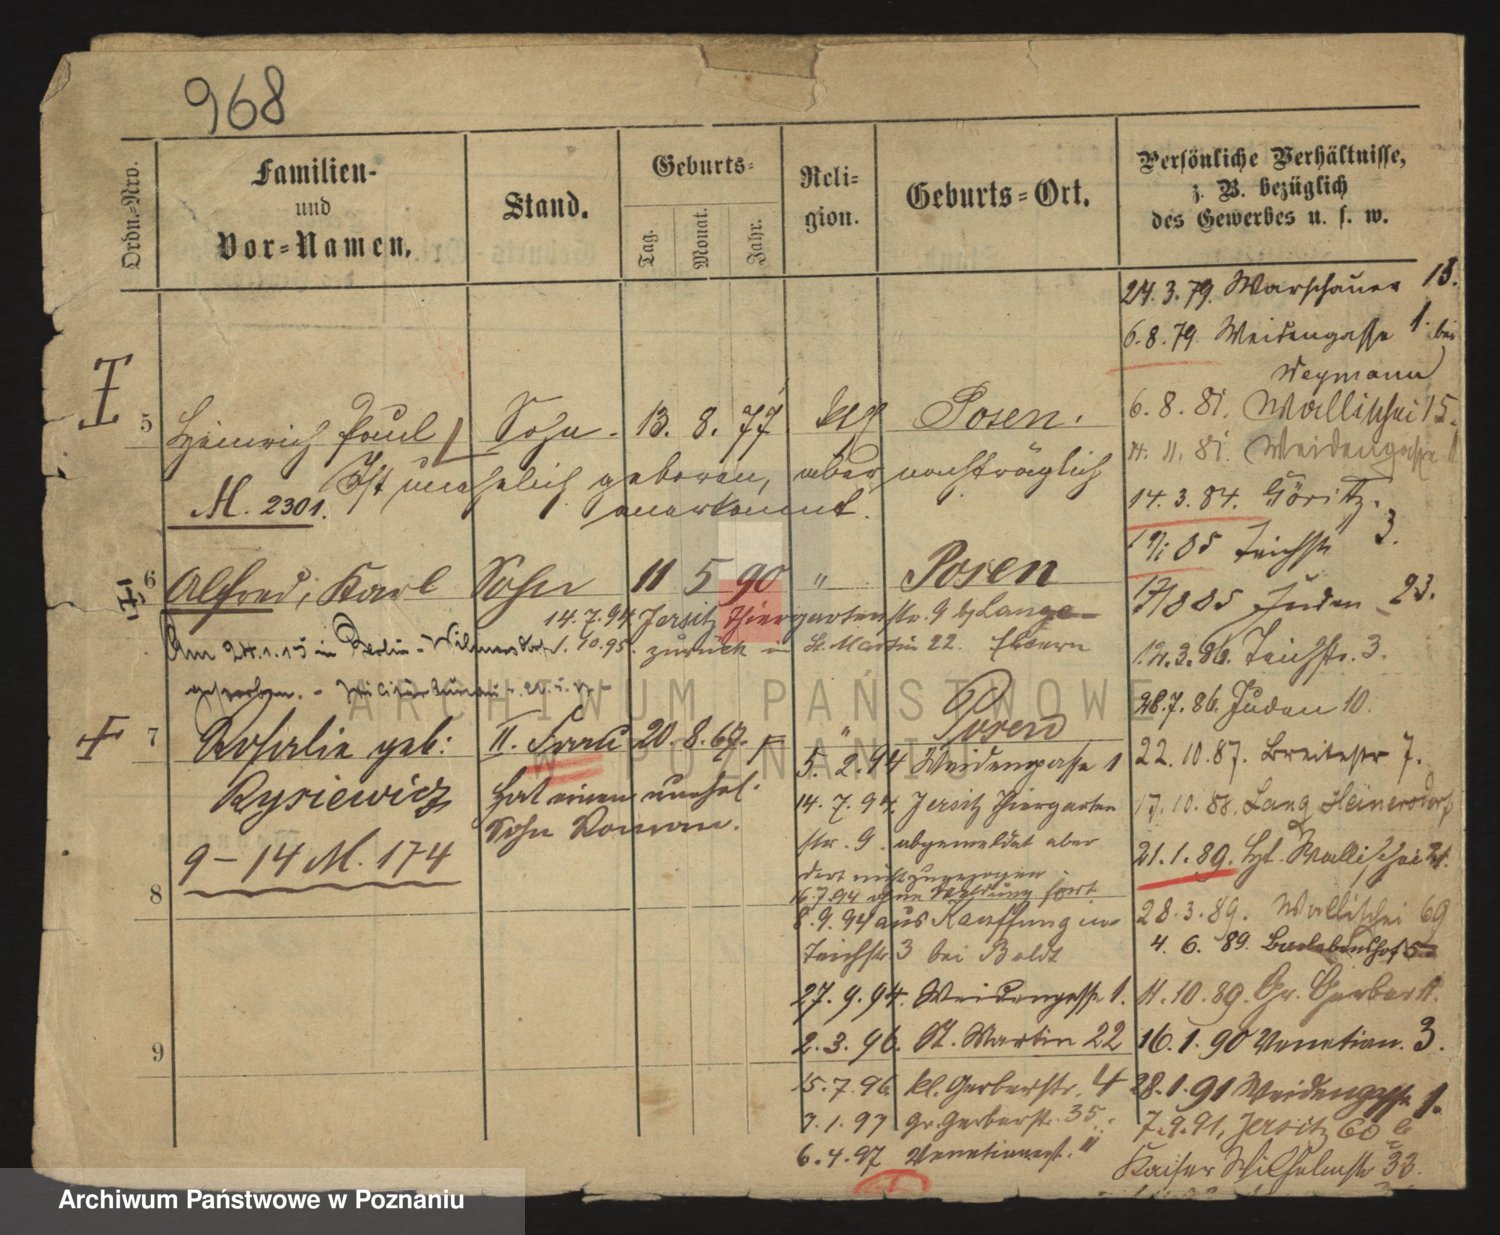 968
Ordn.-Nro.
Familien-
und
Vor-Namen.
Stand.
Geburts-
Tag.
Monat.
Jahr.
Reli-
gion.
Geburts-Ort.
Persönliche Verhältnisse,
z. B. bezüglich
des Gewerbes u. s. w.
5 Heinrich Paul Sohn. 13. 8. 77 Posen.
Ist unehelich geboren, aber nachträglich
anerkannt.
M. 2301.
6 Alfred, Karl Sohn 11 5 90 " Posen
14.7.94 Jersitz Thiergartenstr. 9 b/ Lange
1.10.95. zurück in St. Martin 22. Eltern
Am 24.1.15 in Berlin-Wilmersdorf
gestorben. -
7 Rosalie geb: II. Frau 20. 8. 67. " Posen
Rysiewicz
Hat einen unehel.
Sohn Roman.
9-14 M. 174
8
9
5. 2. 94 Weidengasse 1
14. 7. 94. Jersitz Thiergarten
str. 9. abgemeldet aber
dort nicht zugezogen
16.7.94 ohne Meldung fort
8. 9. 94 aus Kauffung in
Teichstr 3 bei Boldt
27. 9. 94. Weidengasse 1.
2. 3. 96. St. Martin 22
15. 7. 96. kl. Gerberstr. 4
7. 1. 97 Gr. Gerberstr. 35.
6. 4. 97 Venetianerst. 11
24. 3. 79. Warschauer 18.
6. 8. 79. Weidengasse 1. bei
Weymann
6. 8. 81. Wallischei 15.
14. 11. 81. Weidengasse 1
14. 3. 84. Göritz.
85 Teichstr 3.
85 Juden 23.
12. 3. 86. Teichstr. 3.
28. 7. 86. Juden 10.
22. 10. 87. Breitestr 7.
17. 10. 88. Lang Heinersdorf
21. 1. 89. Wallischei 21.
28. 3. 89. Wallischei 69
4. 6. 89. Barlebenshof 5
11. 10. 89. Gr. Gerber 11.
16. 1. 90 Venetian. 3.
28. 1. 91 Weidengasse 1.
7. 9. 91. Jersitz 60 b
Kaiser Wilhelmstr 33.
ARCHIWUM PAŃSTWOWE
W POZNANIU
Archiwum Państwowe w Poznaniu